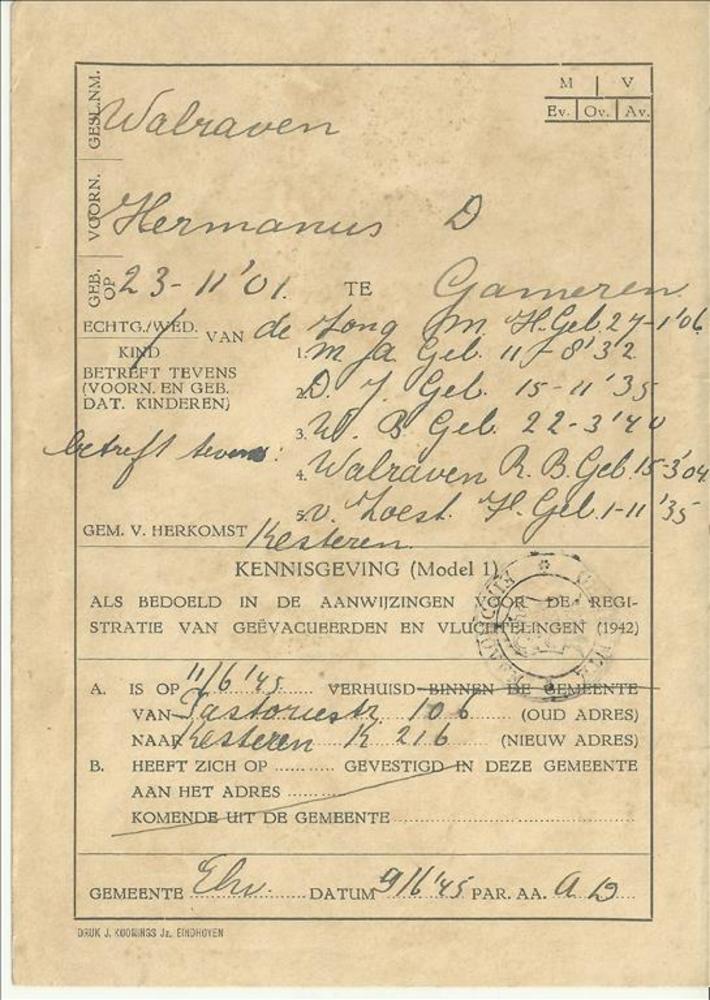 M | V
Ev. | Ov. | Av.
GESL.NM. Walraven
VOORN. Hermanus D
GEB. OP 23-11'01. TE Gameren.
ECHTG./WED. VAN de Jong M. H. Geb. 27-1'06
KIND 1. M Ja Geb. 11-8'32
BETREFT TEVENS
(VOORN. EN GEB. 2. D. J. Geb. 15-11'35
DAT. KINDEREN) 3. W. B Geb. 22-3'40
betreft tevens: 4. Walraven R. B. Geb. 15-3'04
5. v. Zoest. H. Geb. 1-11'35
GEM. V. HERKOMST Kesteren.
KENNISGEVING (Model 1)
ALS BEDOELD IN DE AANWIJZINGEN VOOR DE REGI-
STRATIE VAN GEËVACUEERDEN EN VLUCHTELINGEN (1942)
A. IS OP 11/6'45 VERHUISD BINNEN DE GEMEENTE
VAN Pastoriestr. 106 (OUD ADRES)
NAAR Kesteren K 216 (NIEUW ADRES)
B. HEEFT ZICH OP .......... GEVESTIGD IN DEZE GEMEENTE
AAN HET ADRES ..........
KOMENDE UIT DE GEMEENTE ..........
GEMEENTE Ehv. DATUM 9/6'45 PAR. AA. A D
DRUK J. KOONINGS Jz. EINDHOVEN